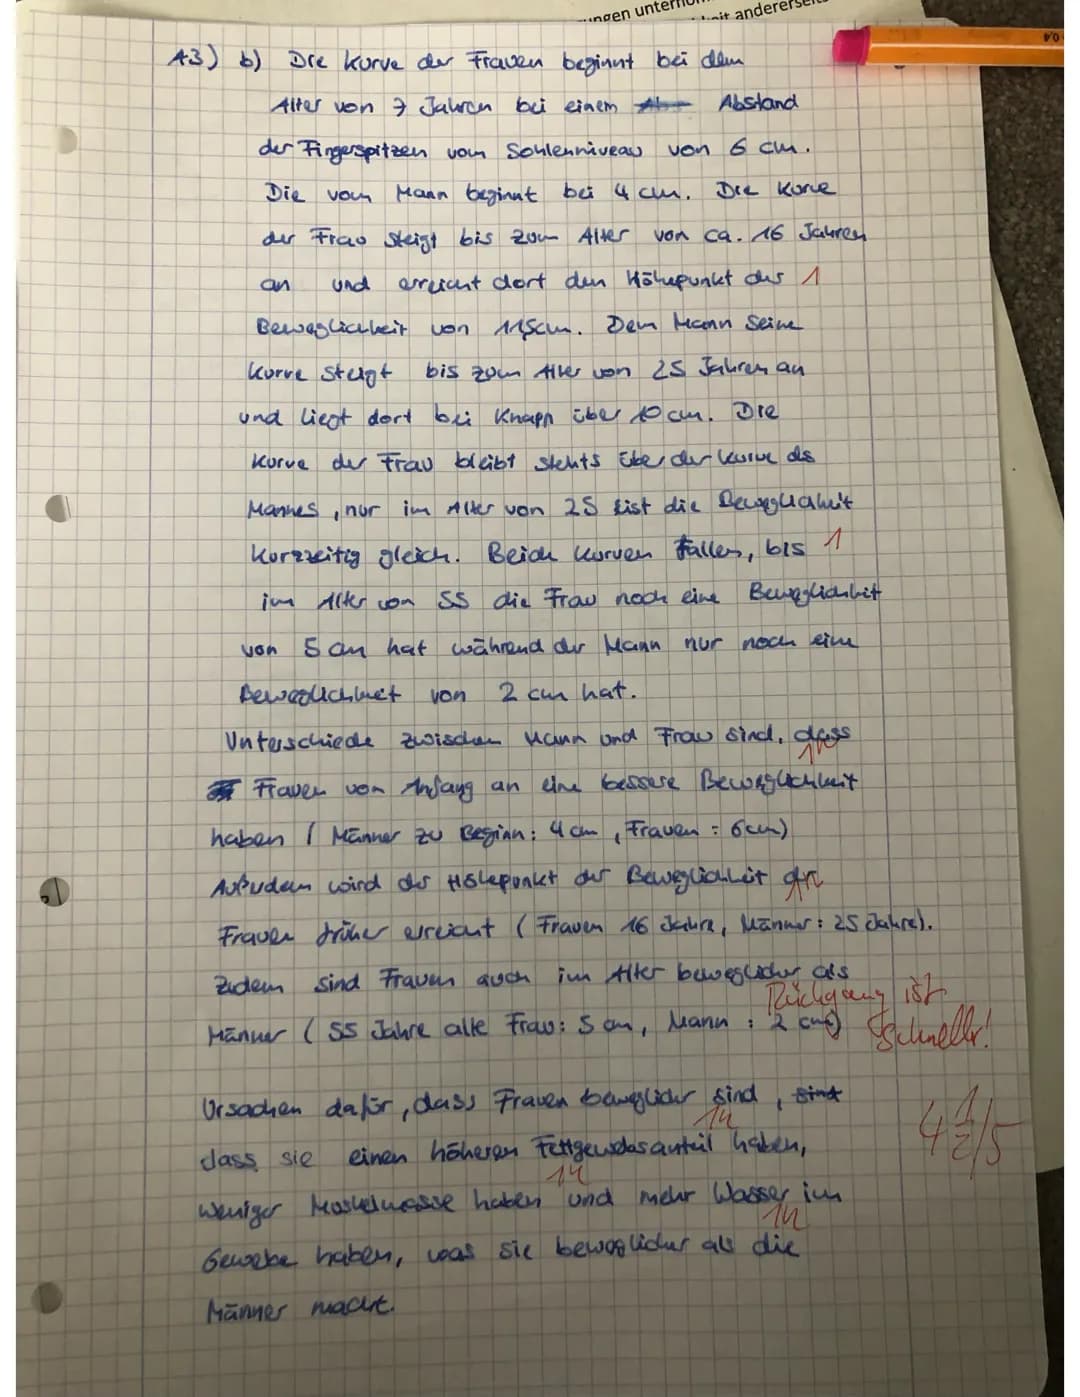 ungen
andererseits
A3) b) Die Kurve der Frauen beginnt bei dem
Alter von 7 Jahren bei einem Abstand
der Fingerspitzen vom Sohlenniveau von 6 cm.
Die vom Mann beginnt bei 4 cm. Die Kurve
der Frau steigt bis zum Alter von ca. 16 Jahren
an und erreicht dort den Höhepunkt der 1
Beweglichkeit von 11,5cm. Dem Mann seine
Kurve steigt bis zum Alter von 25 Jahren an
und liegt dort bei knapp über 10 cm. Die
Kurve der Frau bleibt stehts über der Kurve des
Mannes, nur im Alter von 25 ist die Beweglichkeit
kurzzeitig gleich. Beide Kurven fallen, bis 1
im Alter von 55 die Frau noch eine Beweglichkeit
von 5 cm hat während der Mann nur noch eine
Beweglichkeit von 2 cm hat.
Unterschiede zwischen Mann und Frau sind, dass
Frauen von Anfang an eine bessere Beweglichkeit
haben ( Männer zu Beginn: 4 cm, Frauen: 6cm)
Außerdem wird der Höhepunkt der Beweglichkeit der
Frauen früher erreicht (Frauen 16 Jahre, Männer: 25 Jahre).
Zudem sind Frauen auch im Alter beweglicher als
Rückgang ist
Männer (55 Jahre alte Frau: 5 cm, Mann: 2 cm) schneller!
Ursachen dafür, dass Frauen beweglicher sind, sind
4 1/2/5
dass sie einen höheren Fettgewebsanteil haben,
weniger Muskelmasse haben und mehr Wasser im
Gewebe haben, was sie beweglicher als die
Männer macht.